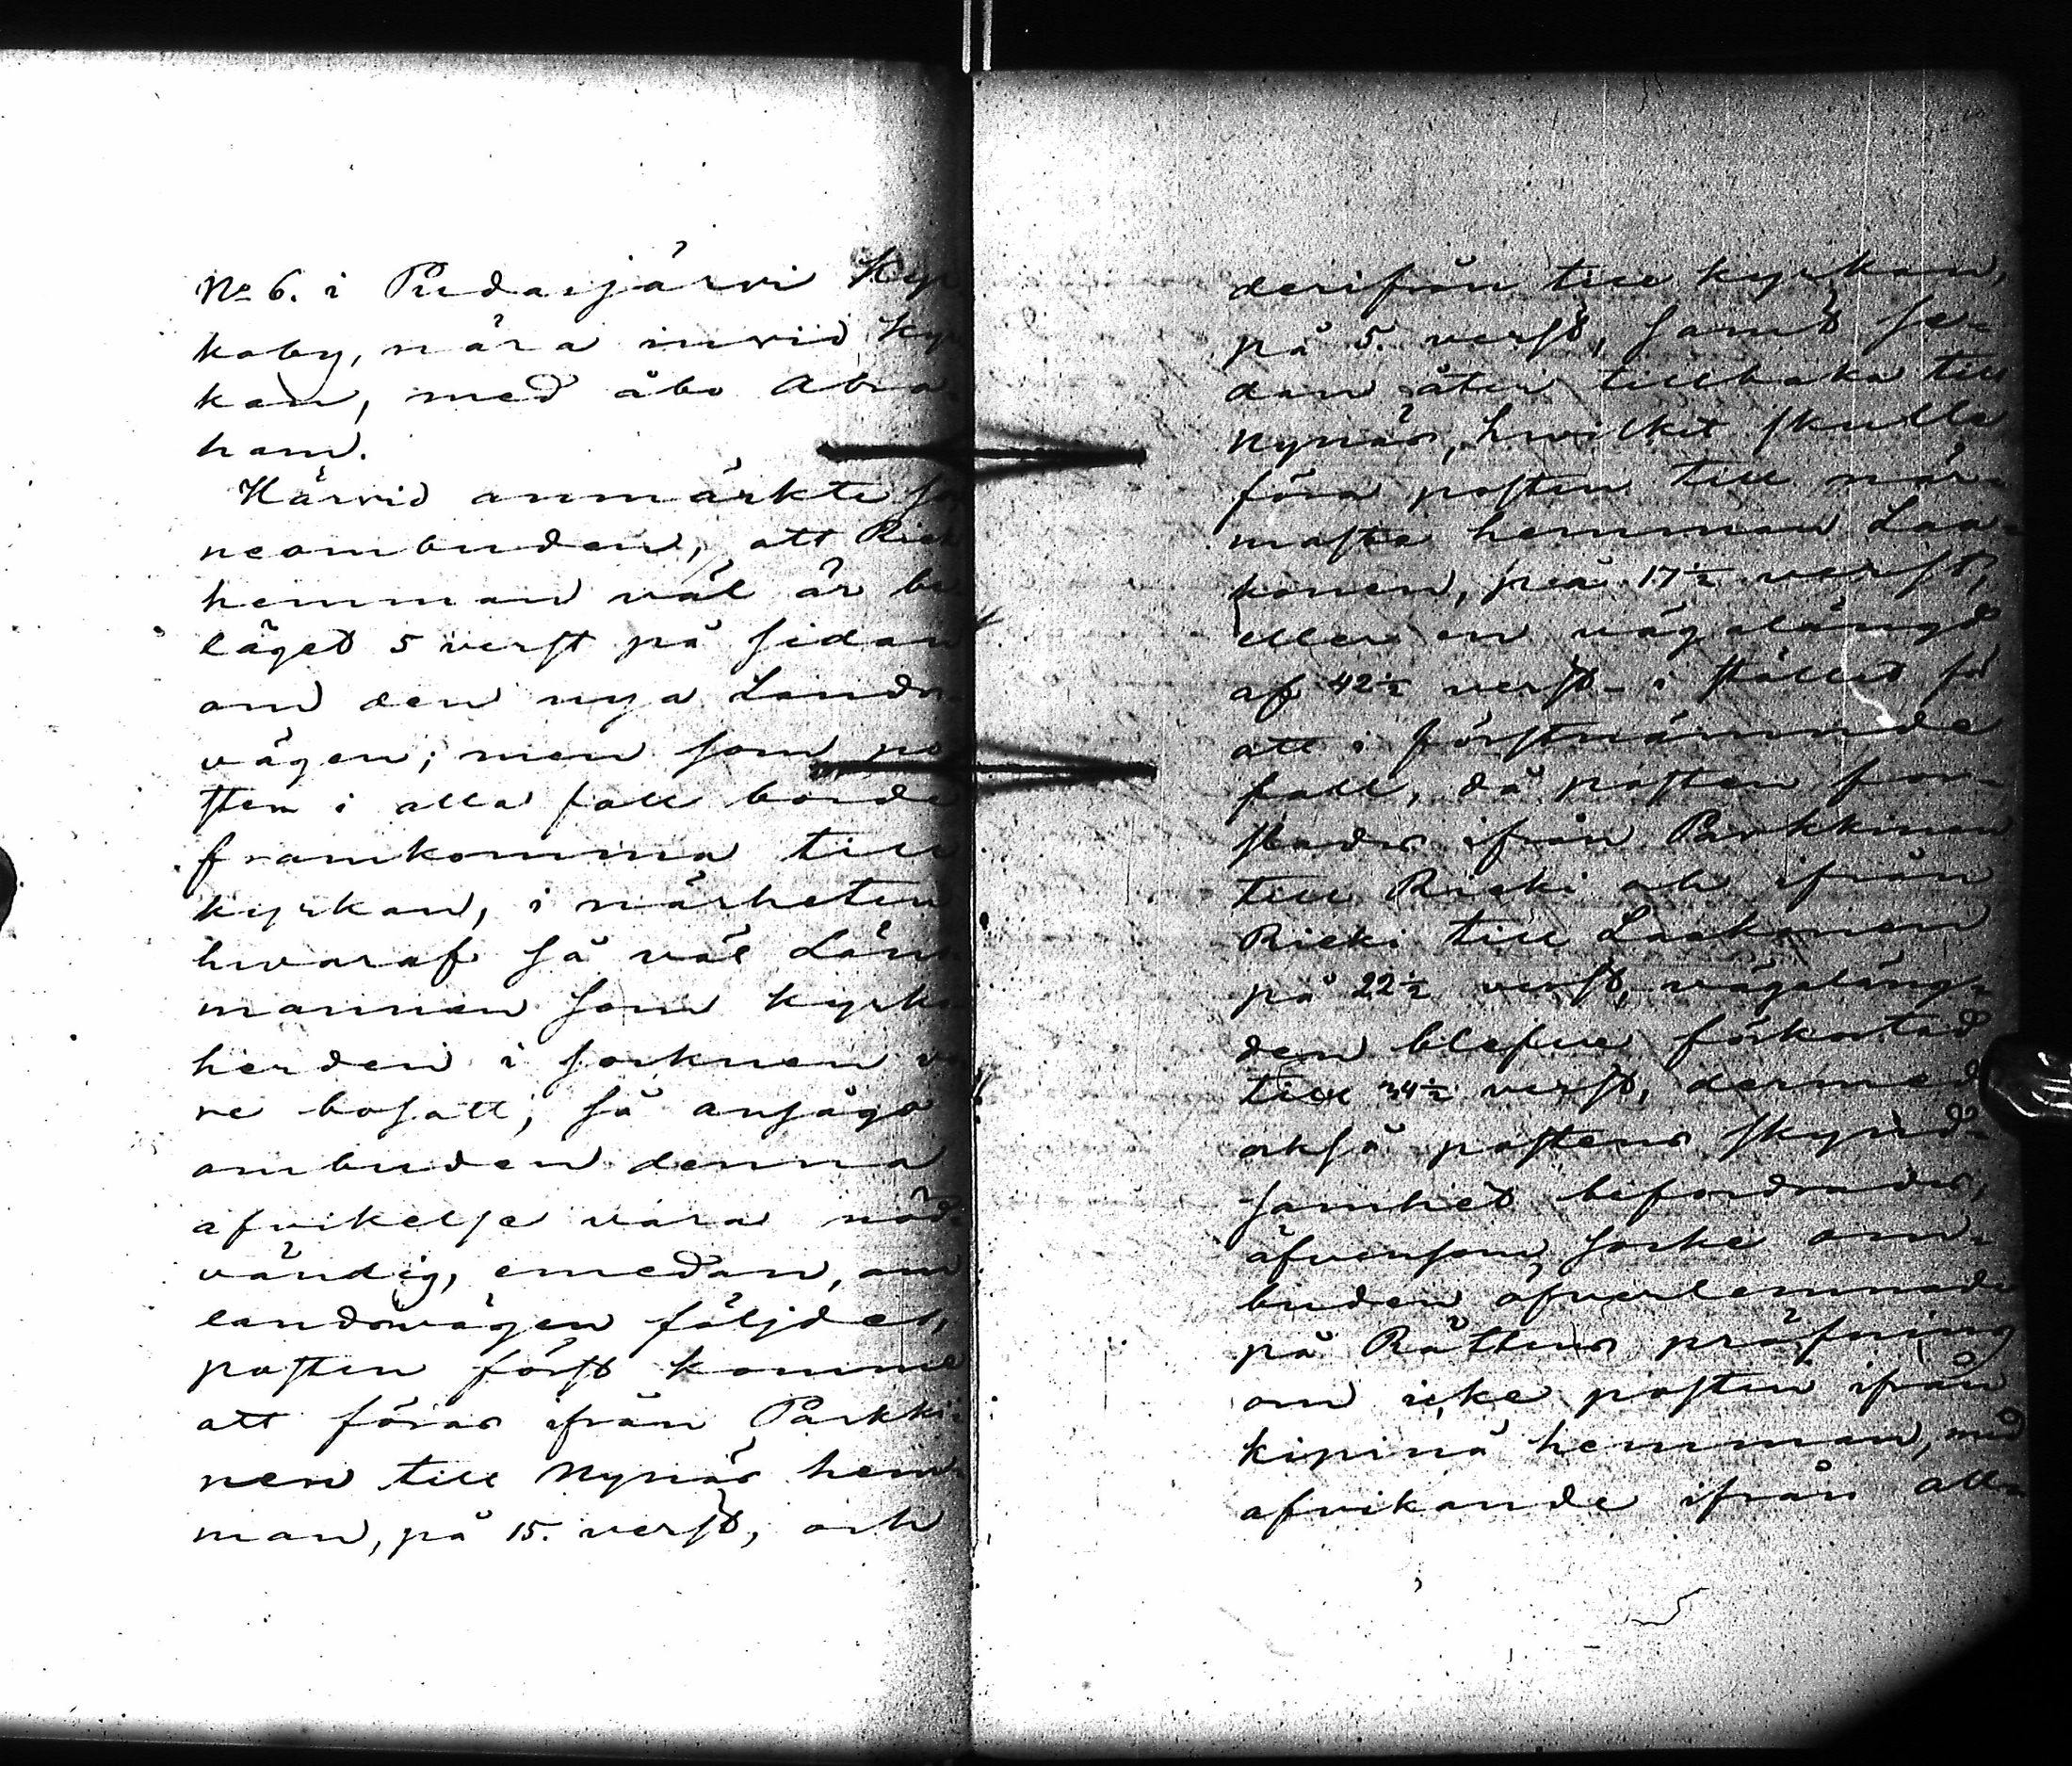 No 6. i Pudasjärvi Kyr
koby, nära invid Kyr
kan, med åbo Abra-
ham.
Härvid anmärkte so
neombuden, att Riek
hemman väl är be
läget 5 verst på sidan
om den nya Lands-
vägen; men som po
sten i alla fall borde
framkomma till
kyrkan, i närheten
hvaraf så väl Läns
mannen som kyrko
herden i socknen vo
re bosatt; så ansågo
ombuden denna
afvikelse vara nöd-
vändig, emedan, om
landsvägen följdes,
posten först komme
att föras ifrån Parkki-
nen till Nynäs hem-
man, på 15. verst, och
derifrån till kyrkan,
på 5. verst, samt se-
dan åter tillbaka till
Nynäs, hvilket skulle
föra posten till när-
maste hemman Laa-
konen, på 17½ verst,
eller en vägalängd
af 42½ verst - i stället för
att i förstnämnde
fall, då posten for-
slades ifrån Parkkinen
till Rieki och ifrån
Rieki till Laakonen
på 22½ verst, vägaläng-
den blefve förkortad
till 34½ verst, dermed
också postens skynd-
samhet befordrades,
äfvensom socke om-
buden öfverlemnade
på Rättens pröfning
om icke posten ifrån
Kipinä hemman, med
afvikande ifrån all-